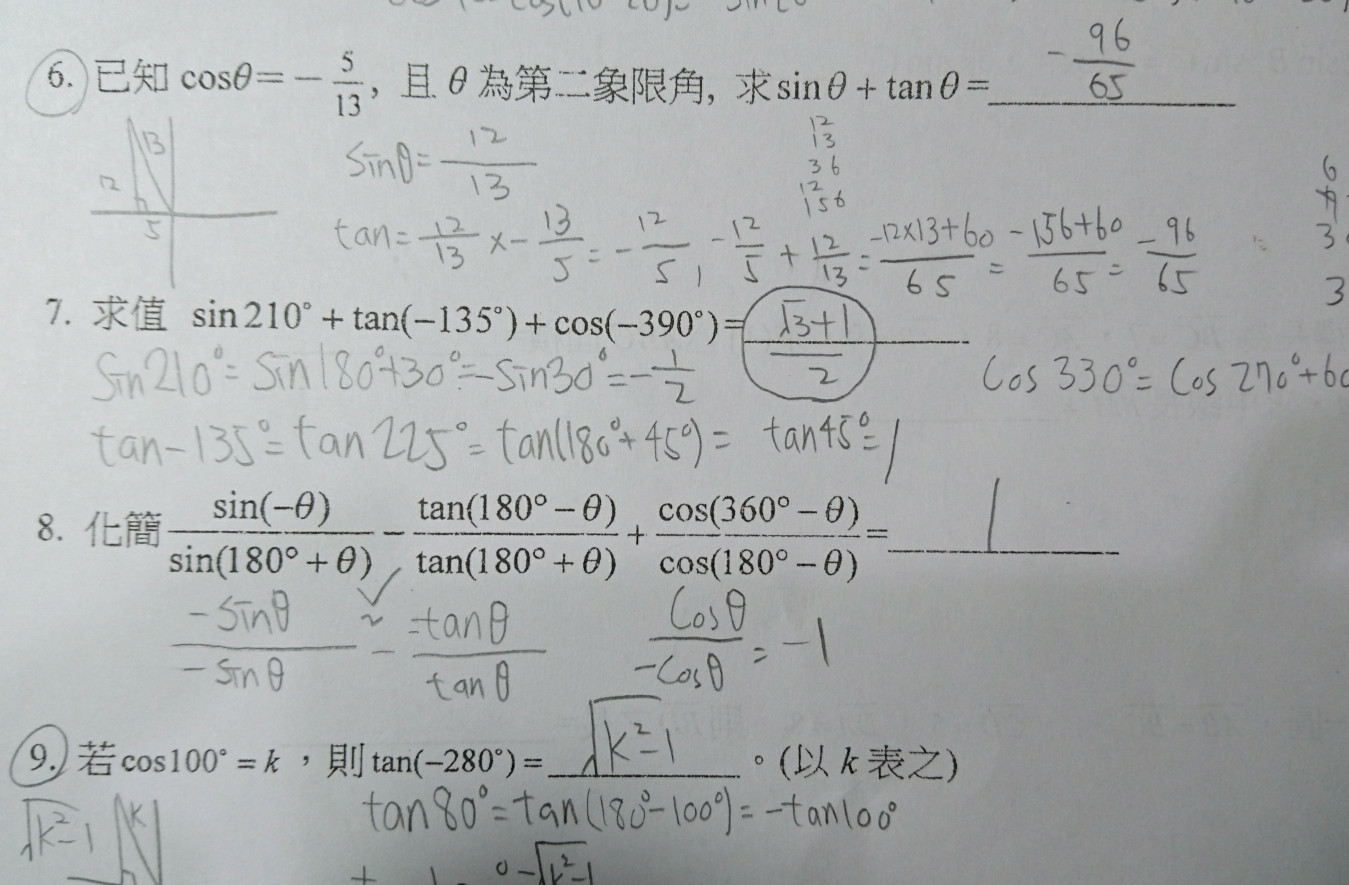 6. 已知 cosθ = − 5/13, 且 θ 為第二象限角, 求 sin θ + tan θ = − 96/65
13
12
5
sinθ = 12/13
12
13
36
12
156
tan = 12/13 × − 13/5 = − 12/5, − 12/5 + 12/13 = −12×13+60/65 = −156+60/65 = −96/65
6
3
3
7. 求值 sin 210° + tan(−135°) + cos(−390°) = √3+1/2
sin210° = sin180°+30° = −sin30° = − 1/2
cos 330° = cos 270°+60
tan−135° = tan 225° = tan(180°+45°) = tan45° = 1
8. 化簡 sin(−θ)/sin(180° + θ) − tan(180° − θ)/tan(180° + θ) + cos(360° − θ)/cos(180° − θ) = 1
−sinθ/−sinθ − −tanθ/tanθ cosθ/−cosθ = −1
9. 若 cos100° = k ,則 tan(−280°) = √k²−1 。(以 k 表之)
tan80° = tan(180°−100°) = −tan100°
√k²−1
k
−√k²−1